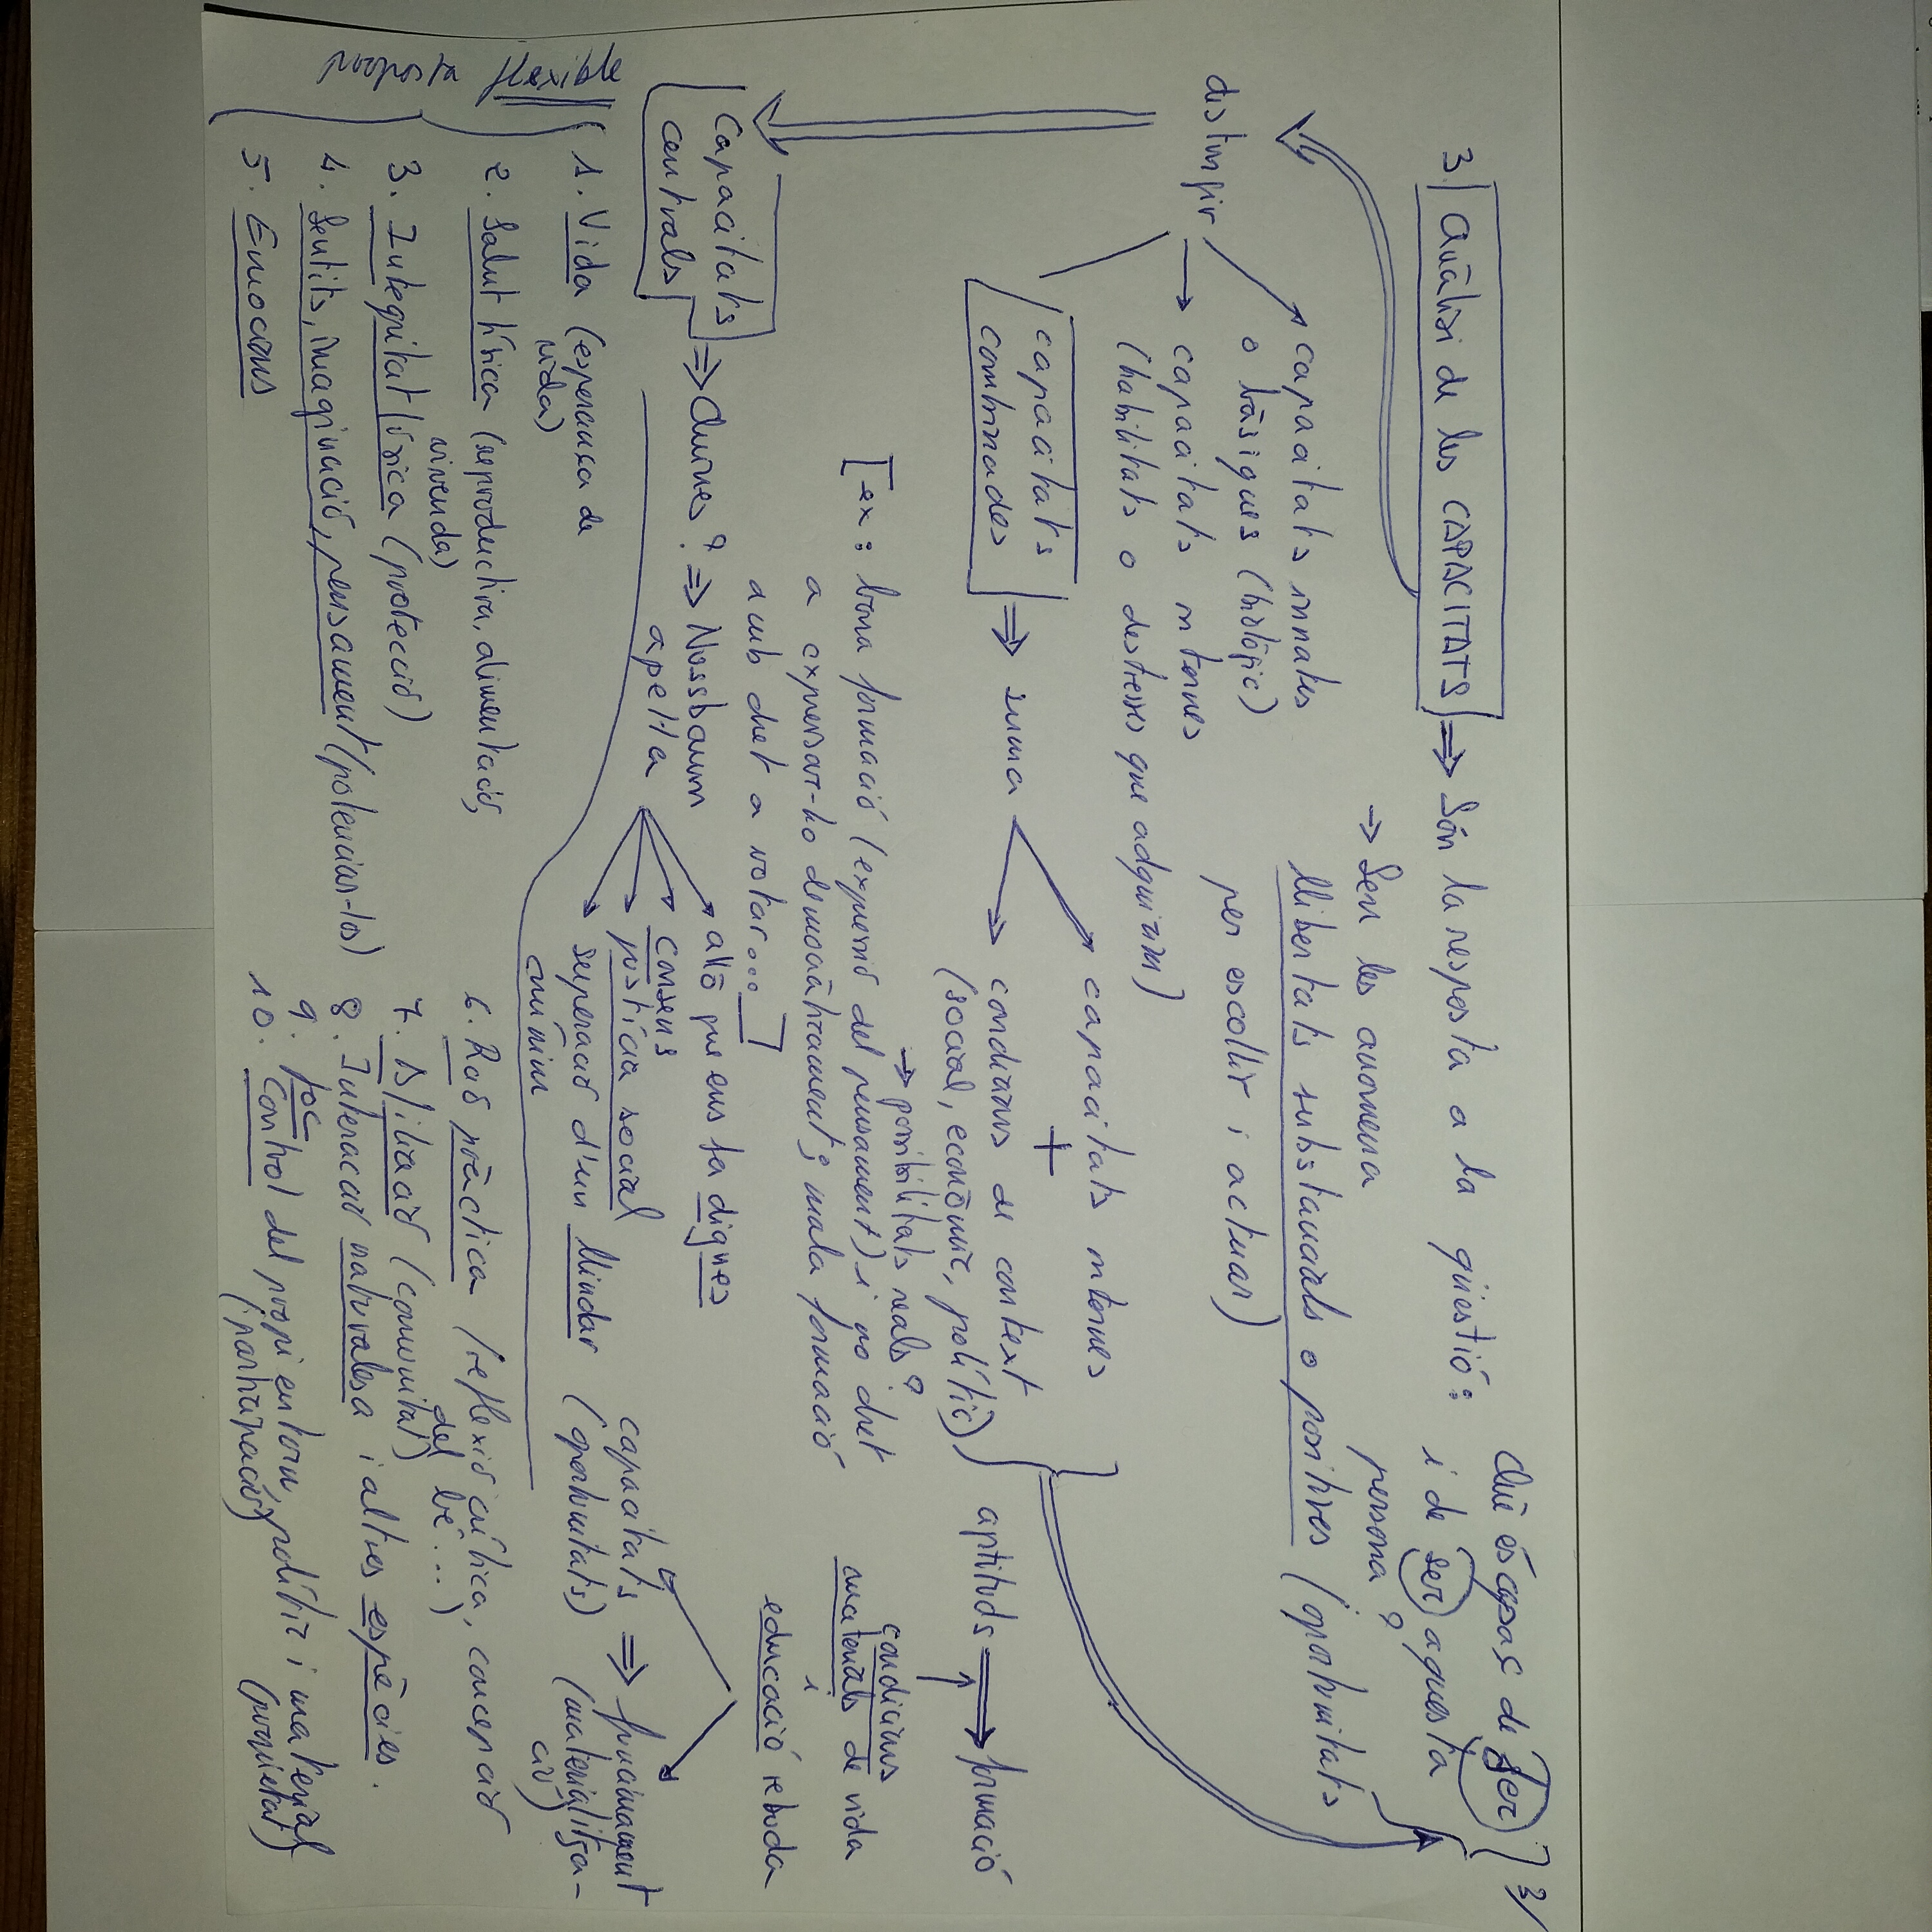 3/
3. Anàlisi de les CAPACITATS ⇒ Són la resposta a la qüestió: Què és capaç de fer
i de ser aquesta
persona?
⇒ Sen les anomena
llibertats substancials o positives (oportunitats
per escollir i actuar)
distingir
capacitats innates
o bàsiques (biològic)
→ capacitats internes
(habilitats o destreses que adquirim)
capacitats
combinades ⇒ suma
capacitats internes
+
condicions de context
(social, econòmic, polític)
aptituds ⇒ formació
condicions
materials de vida
i
educació rebuda
→ possibilitats reals?
[ex: bona formació (expressió del pensament) i no dret
a expressar-ho democràticament; mala formació
amb dret a votar...]
Capacitats
centrals ⇒ Quines? ⇒ Nussbaum
apel·la
allò que ens fa dignes
consens
justícia social
superació d'un llindar
mínim
capacitats ⇒ funcionament
(oportunitats) (materialitza-
ció)
proposta flexible
1. Vida (esperança de
vida)
2. Salut física (reproductiva, alimentació,
vivenda)
3. Integritat física (protecció)
4. Sentits, imaginació, pensament (potenciar-los)
5. Emocions
6. Raó pràctica (reflexió crítica, concepció
del bé...)
7. Afiliació (comunitat)
8. Interacció naturalesa i altres espècies.
9. Joc
10. Control del propi entorn, polític i material
(participació) (propietat)